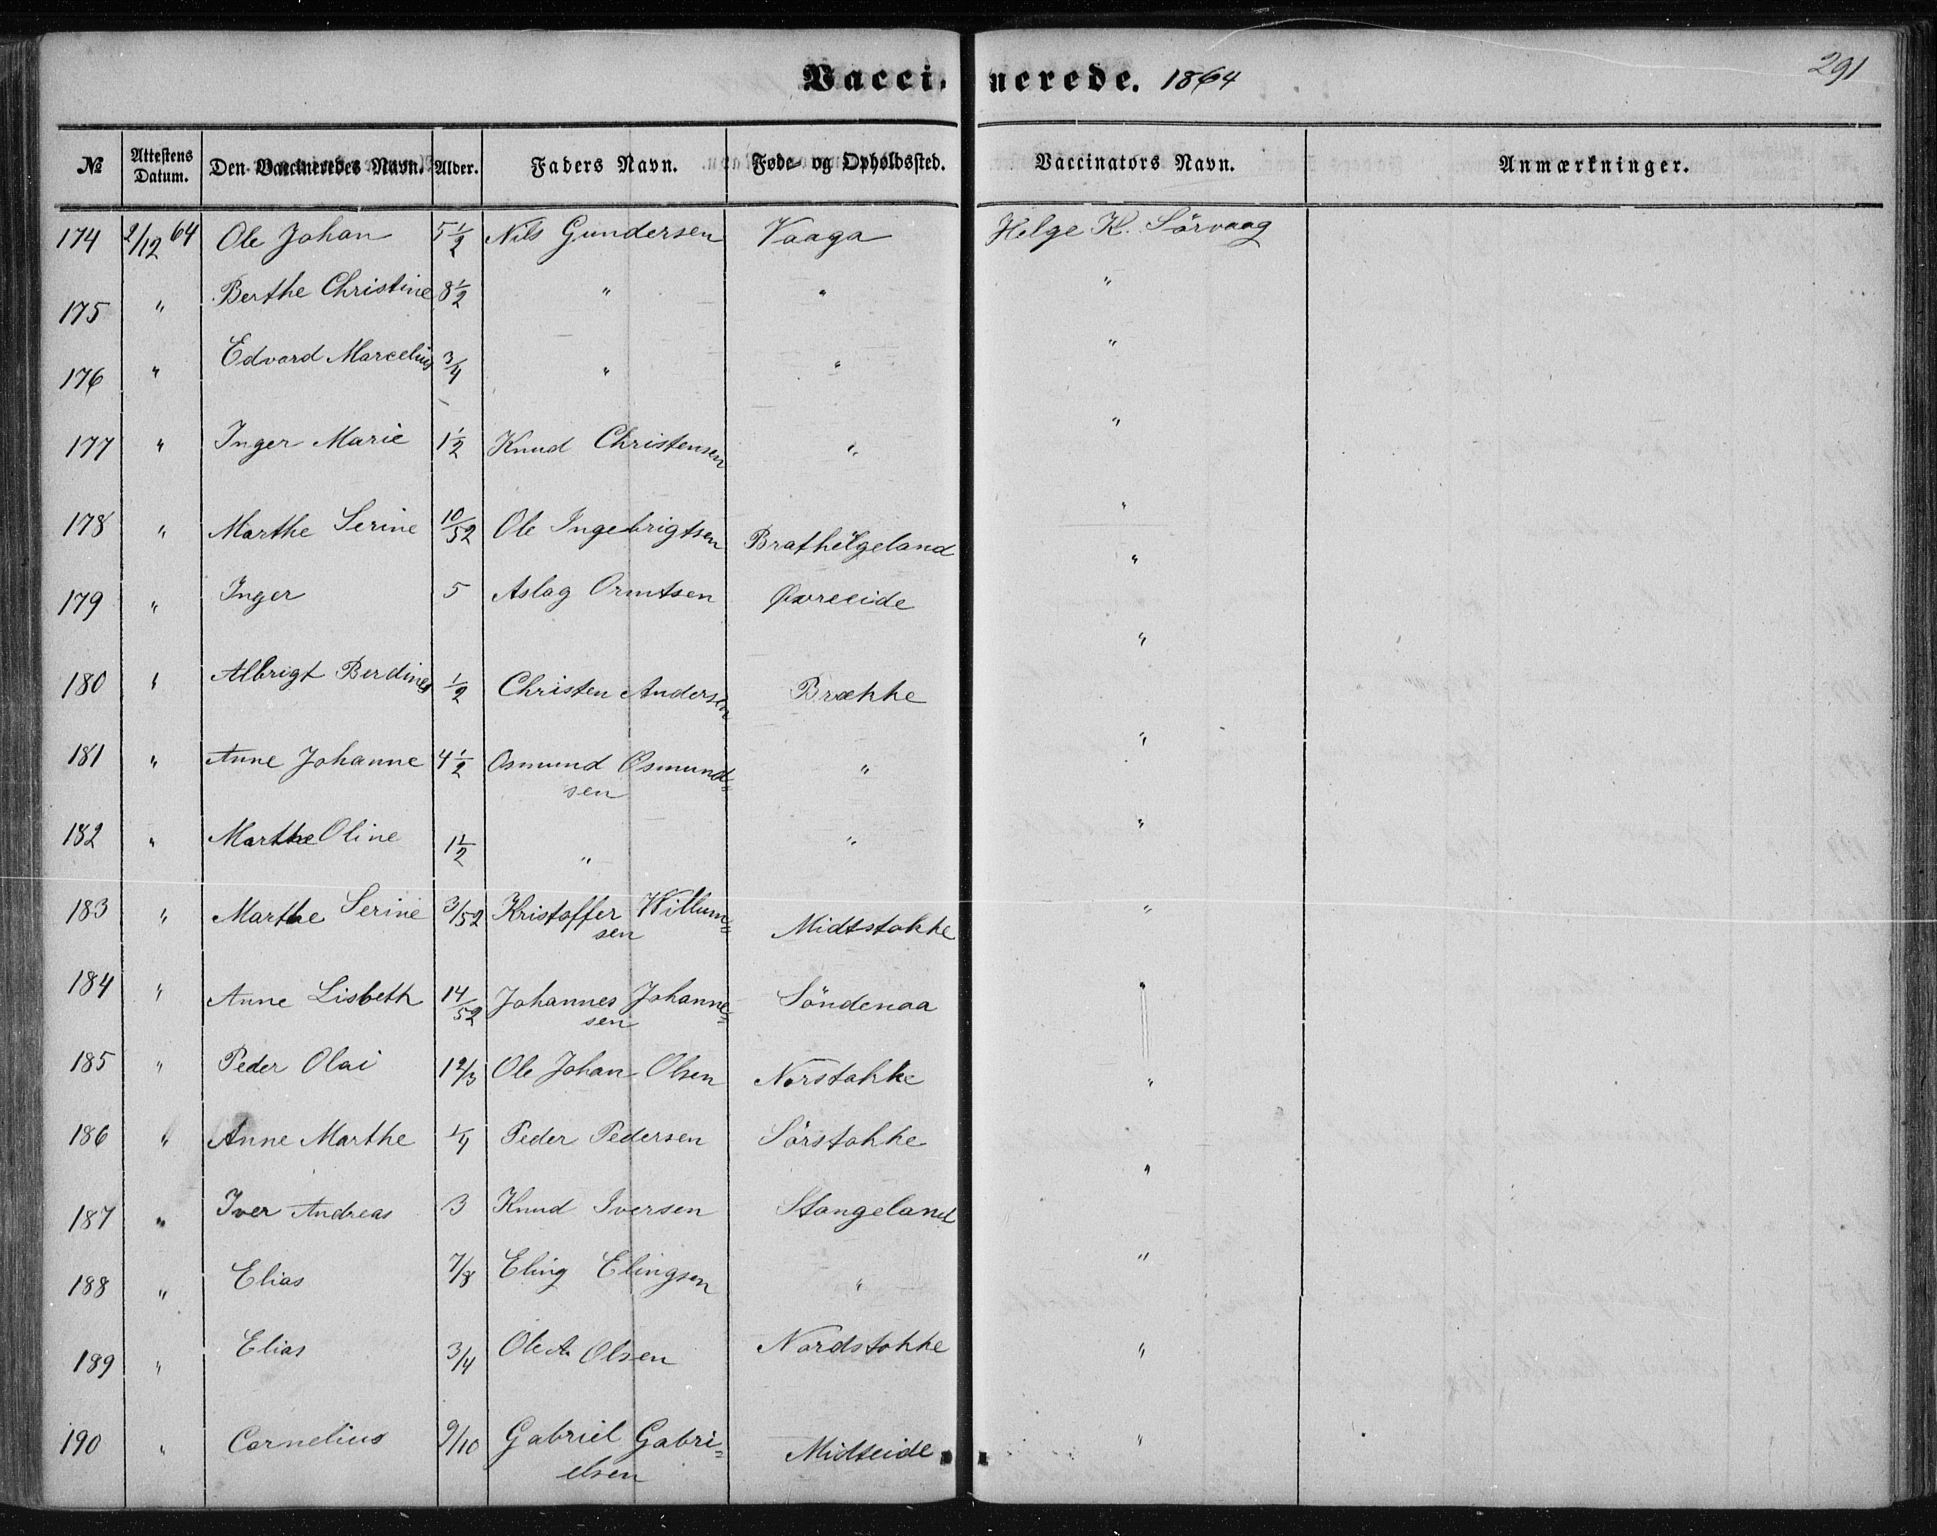 Vaccinerede. 1864 291
№ Attestens Datum. Den Vaccineredes Navn. Alder. Faders Navn. Føde- og Opholdssted. Vaccinators Navn. Anmærkninger.
174 2/12 64 Ole Johan 5 1/2 Nils Gundersen Vaaga Helge K. Sörvaag
175 " Berthe Christine 8 1/2 " " "
176 " Edvard Marcelius 3/4 " " "
177 " Inger Marie 1 1/2 Knud Christensen " "
178 " Marthe Serine 10/52 Ole Ingebrigtsen Brathelgeland "
179 " Inger 5 Aslag Ormtsen Øvreeide "
180 " Albrigt Berdines 1/2 Christen Andersen Brække "
181 " Anne Johanne 4 1/2 Osmund Osmund=
sen " "
182 " Marthe Oline 1 1/2 " " "
183 " Marthe Serine 3/52 Kristoffer Willum=
sen Midtstokke "
184 " Anne Lisbeth 14/52 Johannes Johanne=
sen Söndenaa "
185 " Peder Olai 1 2/3 Ole Johan Olsen Norstokke "
186 " Anne Marthe 1/4 Peder Pedersen Sörstokke "
187 " Iver Andreas 3 Knud Iversen Stangeland "
188 " Elias 7/8 Eling Elingsen " "
189 " Elias 3/4 Ole A. Olsen Nordstokke "
190 " Cornelius 9/10 Gabriel Gabri=
elsen Midteide "